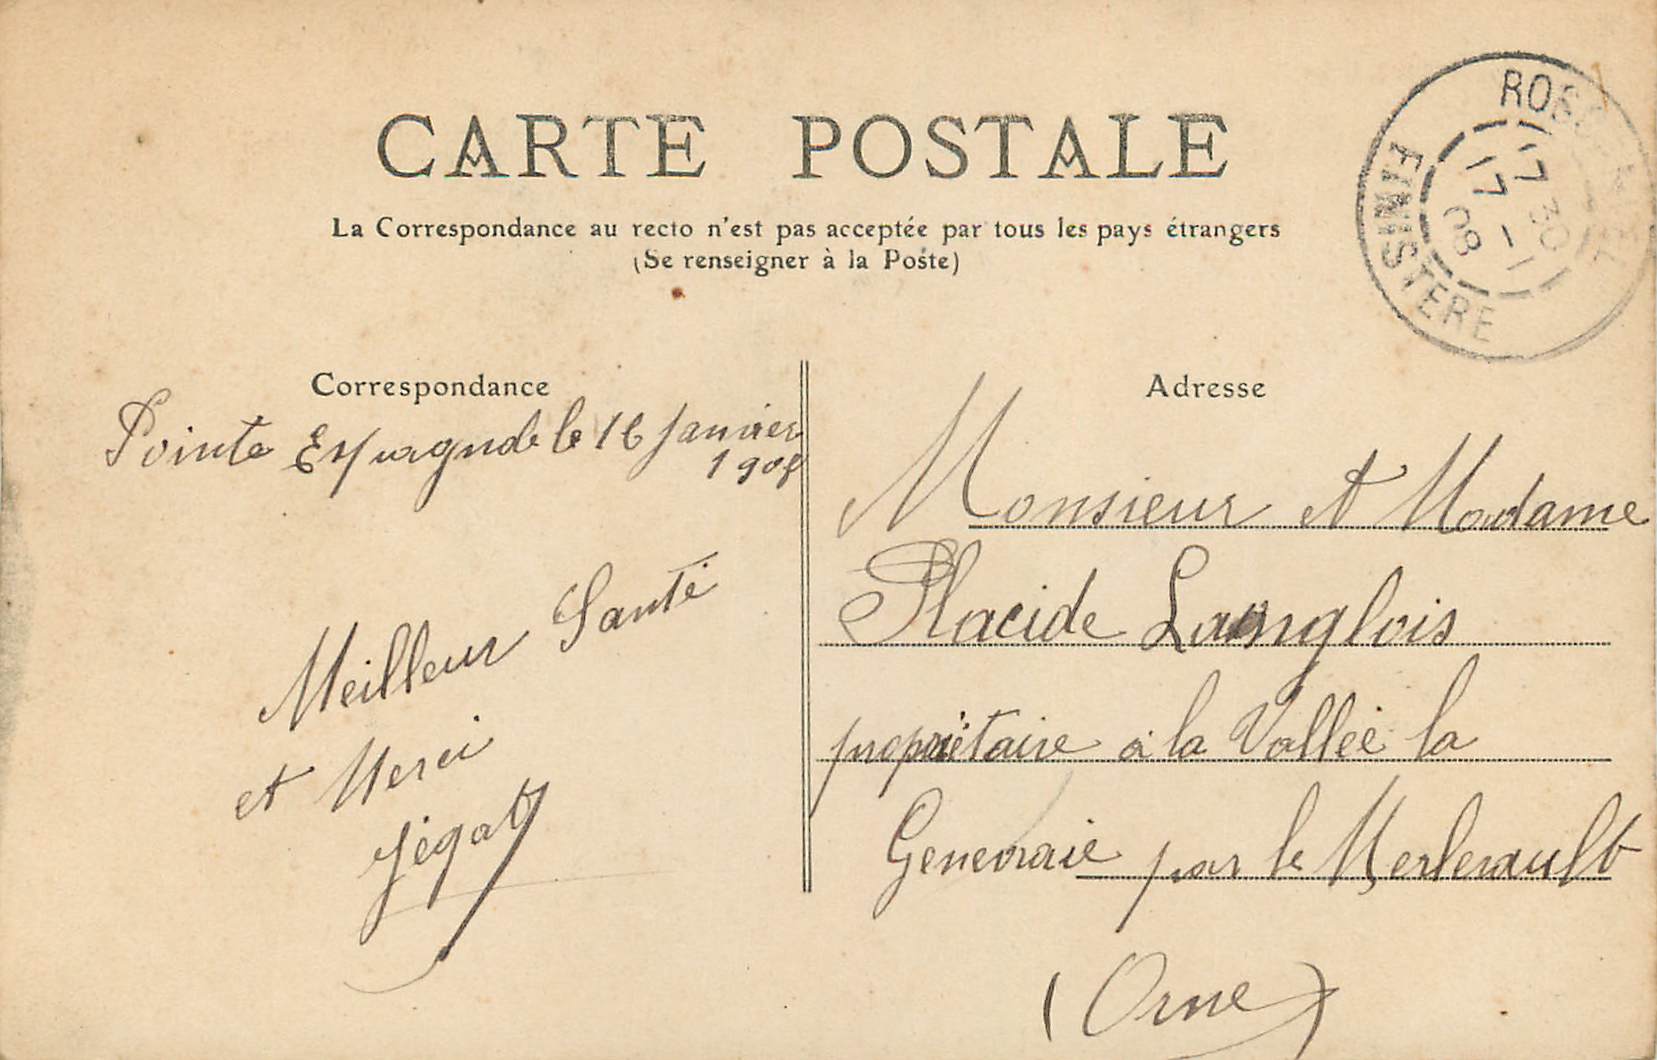 CARTE POSTALE
La Correspondance au recto n'est pas acceptée par tous les pays étrangers
(Se renseigner à la Poste)
FINISTERE
17 30
17 -1
08
Correspondance
Pointe Espagnole le 16 Janvier
1908
Meilleur Santé
et Merci
Jégat
Adresse
Monsieur et Madame
Placide Langlois
propriétaire à la Vallée la
Genevraie par le Merlerault
(Orne)